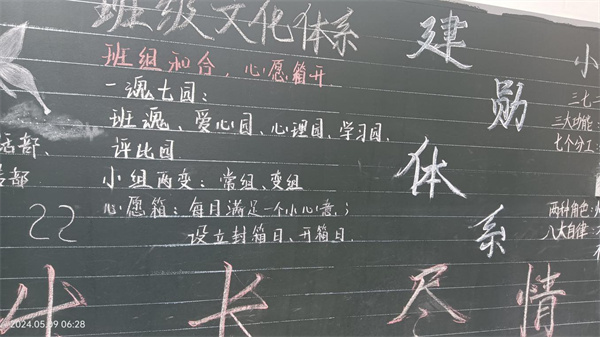 班级文化体系
班组和合，心愿箱开
一魂七园：
班魂、爱心园、心理园、学习园、
评比园
小组两变：常组、变组
心愿箱：每月满足一个小心意；
设立封箱日、开箱日.
部、
部
22
建勋体系
小
三七二
三大功能：
七个分工：
两种角色：
八大自律：
长 尽 情
2024.05.09 06:28